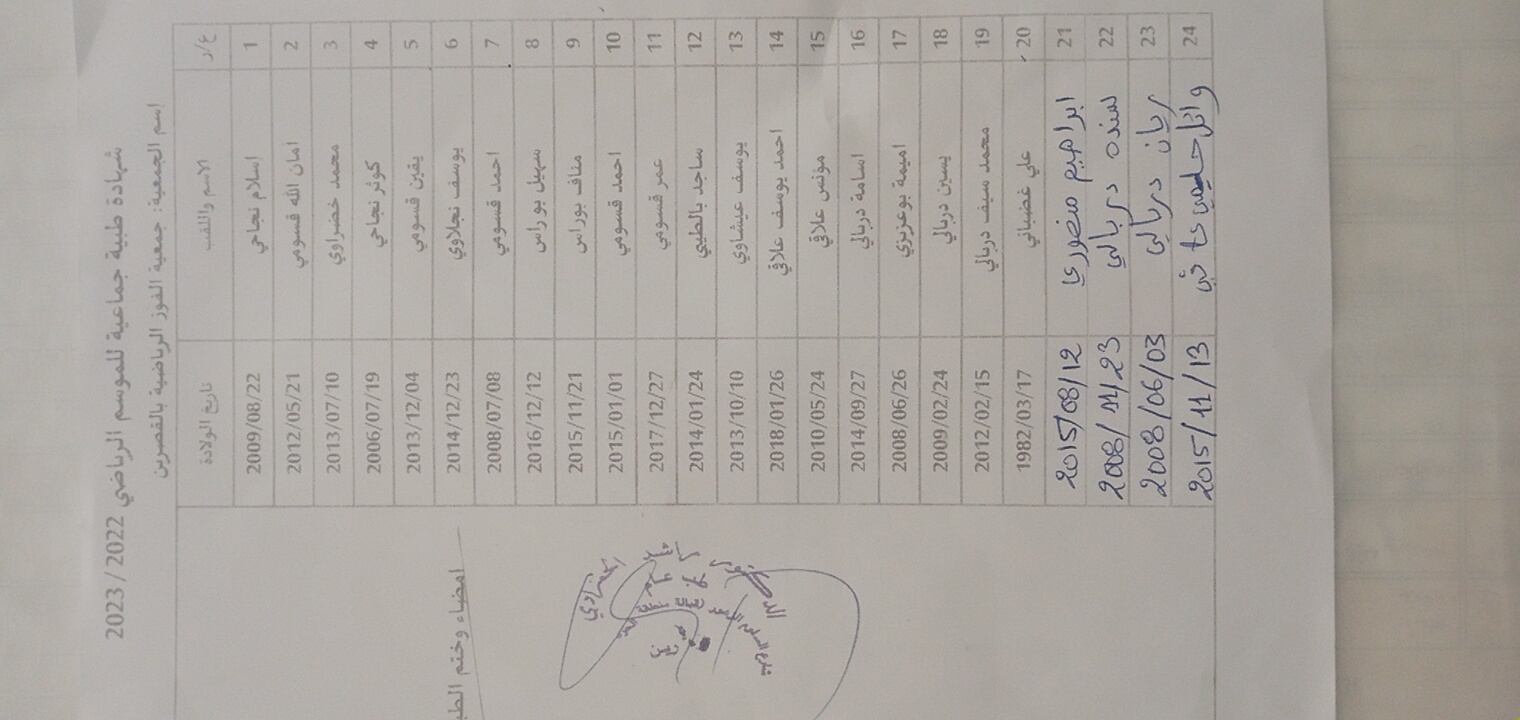 شهادة طبية جماعية للموسم الرياضي 2022 / 2023
اسم الجمعية: جمعية الفوز الرياضية بالقصرين
ع/ر الاسم واللقب تاريخ الولادة
1 إسلام نجاحي 2009/08/22
2 امان الله قسومي 2012/05/21
3 محمد خضراوي 2013/07/10
4 كوثر نجاحي 2006/07/19
5 يقين قسومي 2013/12/04
6 يوسف نجلاوي 2014/12/23
7 احمد قسومي 2008/07/08
8 سهيل بوراس 2016/12/12
9 مناف بوراس 2015/11/21
10 احمد قسومي 2015/01/01
11 عمر قسومي 2017/12/27
12 ساجد بالطيبي 2014/01/24
13 يوسف عيشاوي 2013/10/10
14 احمد يوسف علاقي 2018/01/26
15 مونس علاقي 2010/05/24
16 اسامة دربالي 2014/09/27
17 اميمة بوعزيزي 2008/06/26
18 يسين دربالي 2009/02/24
19 محمد سيف دربالي 2012/02/15
20 علي غضباني 1982/03/17
21 ابراهيم منصوري 2015/08/12
22 سنده دربالي 2008/11/23
23 ريان دربالي 2008/06/03
24 وائل 2015/11/13
امضاء وختم